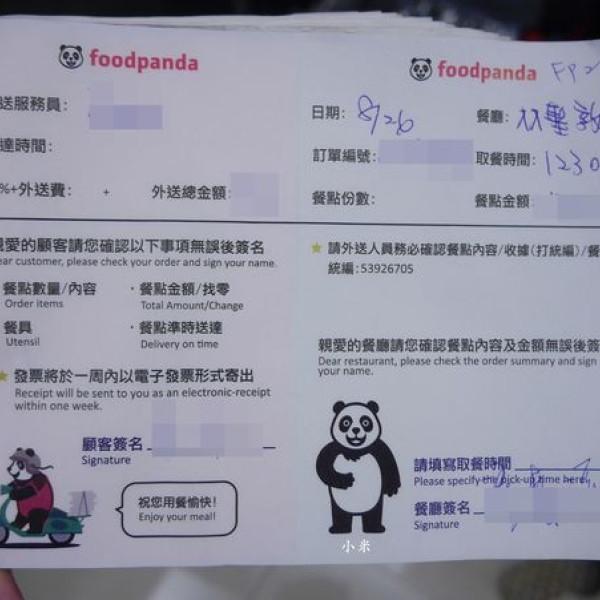 foodpanda
送服務員:
達時間:
%+外送費: + 外送總金額:
親愛的顧客請您確認以下事項無誤後簽名
ear customer, please check your order and sign your name.
餐點數量/內容
Order items
・餐點金額/找零
Total Amount/Change
餐具
Utensil
・餐點準時送達
Delivery on time
★ 發票將於一周內以電子發票形式寄出
Receipt will be sent to you as an electronic-receipt
within one week.
顧客簽名
Signature
祝您用餐愉快!
Enjoy your meal!
foodpanda
日期: 8/26
餐廳: 林聖
訂單編號:
取餐時間: 1230
餐點份數:
餐點金額:
★ 請外送人員務必確認餐點內容/收據(打統編)/餐
統編:53926705
親愛的餐廳請您確認餐點內容及金額無誤後簽
Dear restaurant, please check the order summary and sign
your name.
請填寫取餐時間
Please specify the pick-up time here.
餐廳簽名
Signature
小米